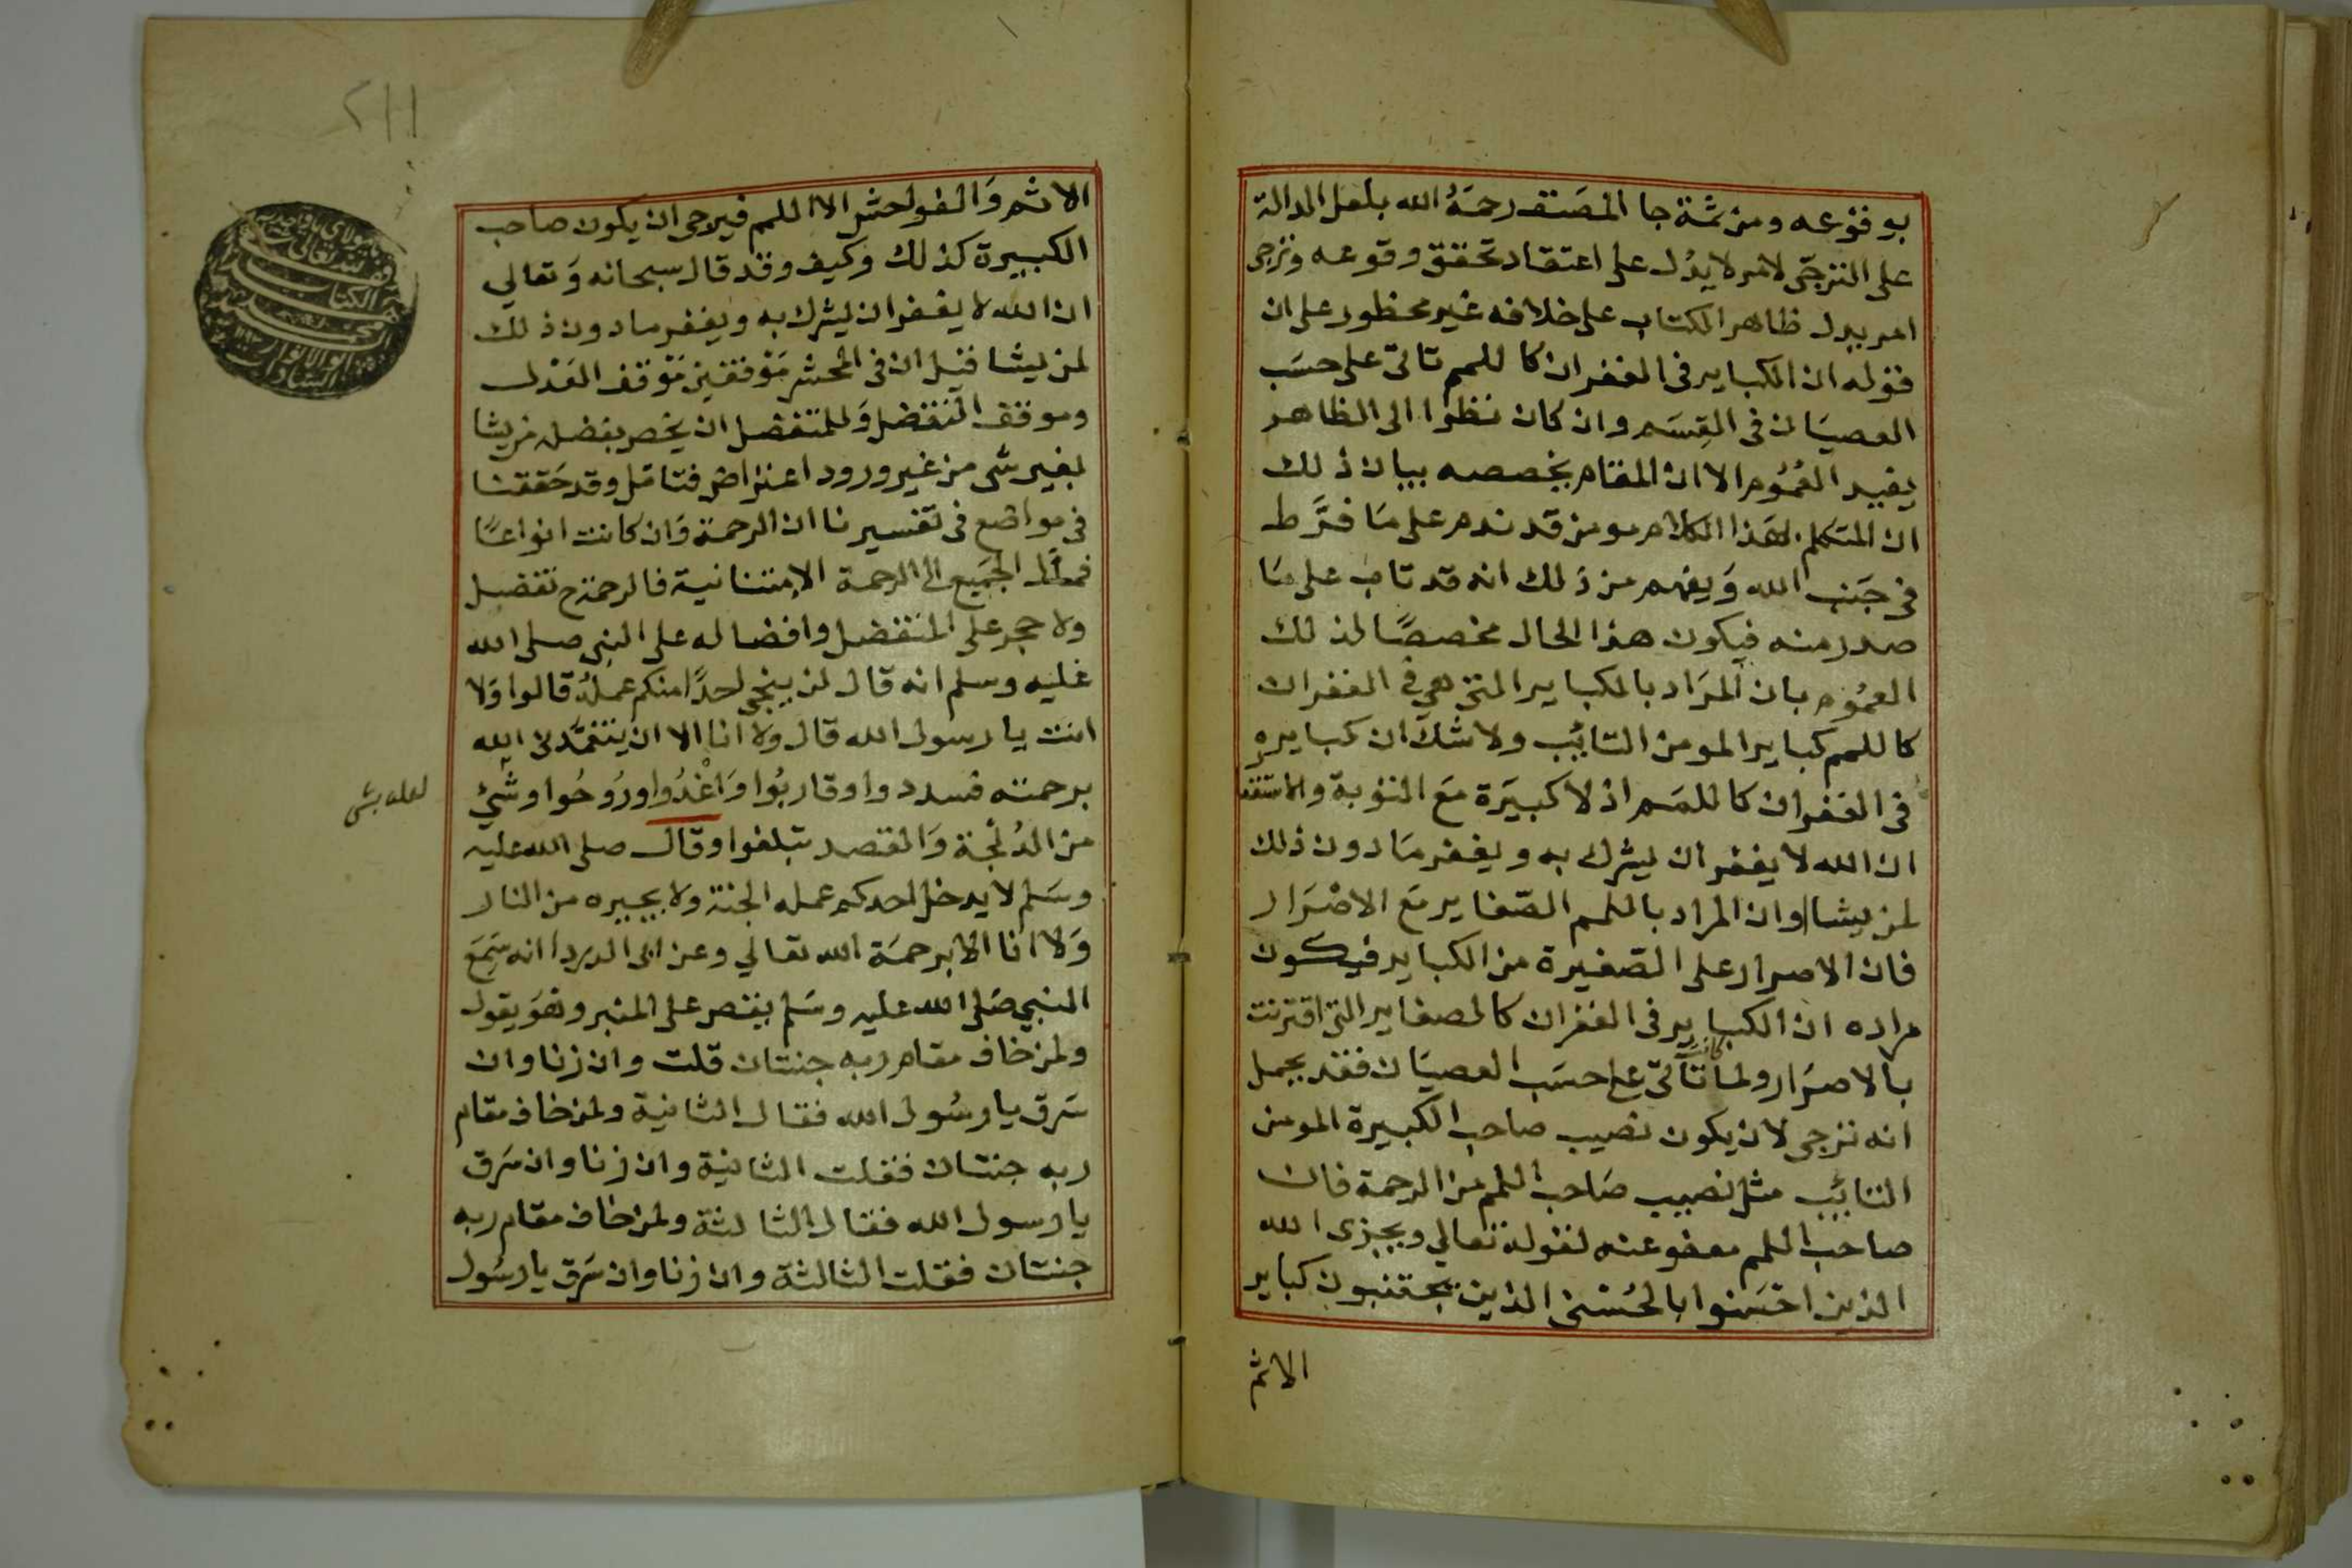 بوقوعه ومن ثمة جا المصنف رحمَهُ الله بلعل الدالة
على الترجّى لامر لا يدُل على اعتقاد تحقق وقوعه وترجى
امر يدل ظاهر الكتاب على خلافه غير محظور على ان
قوله ان الكباير فى الغفران كا للمم تاتى على حسَب
العصيَان فى القِسَم وان كان نظرا الى الظاهر
يفيد العُمُوم الا ان المقام يخصصه بيان ذلك
ان المتكلم بهَذا الكلام مومن قد ندم على مَا فرَّط
فى جَنب الله وَيفهم من ذلك انه قد تاب على مَا
صدر منه فيكون هذا الحال مخصصًا لذلك
العمُوم بان المرَاد بالكباير التى هى فى الغفران
كا للمم كباير المومن التائب ولا شك ان كبايره
فى الغفران كا للمَم اذ لا كبيَرة مَع التوبة والاستغفا
ان الله لا يغفر ان يشرك به ويغفر مَا دون ذلك
لمن يشا وان المراد باللمم الصّغاير مَع الاصْرَار
فان الاصرار على الصّغيرة من الكباير فيكون
مراده ان الكباير فى الغفران كالصغاير التى اقترنت
بالاصرَار ولما كانت تاتى على حسَب العصيَان فقد يجمل
انه ترجى لان يكون نصيب صاحب الكبيرة المومن
التائب مثل نصيب صَاحب اللمم من الرحمة فان
صاحب اللمم معفو عنه لقوله تعالي ويجزى الله
الذين احْسَنوا بالحُسْنى الذين يجتنبون كباير
الاثم
٢١١
الاثم وَالفواحش الا اللمم فيرجى ان يكون صاحب
الكبيرة كذلك وكيف وقد قال سبحانه وَتعالي
ان الله لا يغفر ان يشرك به ويغفر ما دون ذلك
لمن يشا قيل ان فى المحشر مَوْقفين مَوْقف العَدْل
وموقف التفضل وَللمتفضل ان يخص بفضله من يشا
بغير شى من غير ورود اعتراض فتامّل وقد حَققنا
فى مواضع فى تفسيرنا ان الرحمة وَان كانت انواعًا
فمآل الجميَع الى الرحمة الامتنانية فالرحمة ح تفضل
ولا حجر على المتفضل وافضاله على النبى صلى الله
عليه وسلم انه قال لن ينجى احدًا منكم عملهُ قالوا وَلا
انت يا رسول الله قال وَلا انا الا ان يتغمّدنى الله
برحمته فسددوا وقاربُوا وَاغْدُوا ورُوحُوا وشَئ
لعله بشى
من الدُلجة وَالقصد تبلغوا وقال صلى الله عليه
وسَلم لا يدخل احدكم عمله الجنة ولا يجيره من النار
وَلا انا الا برحمَة الله تعالي وعن ابى الدردا انه سَمِعَ
النبي صَلى الله عليه وسَلم يقص على المنبر وهوَ يقول
ولمن خاف مقام ربه جنتان قلت وان زنا وان
سَرق يا رسُول الله فقال الثانية ولمن خاف مقام
ربه جنتان فقلت الثانية وان زنا وان سَرق
يا رسول الله فقال الثالثة ولمن خاف مقام ربه
جنتان فقلت الثالثة وان زنا وان سَرق يا رسُول